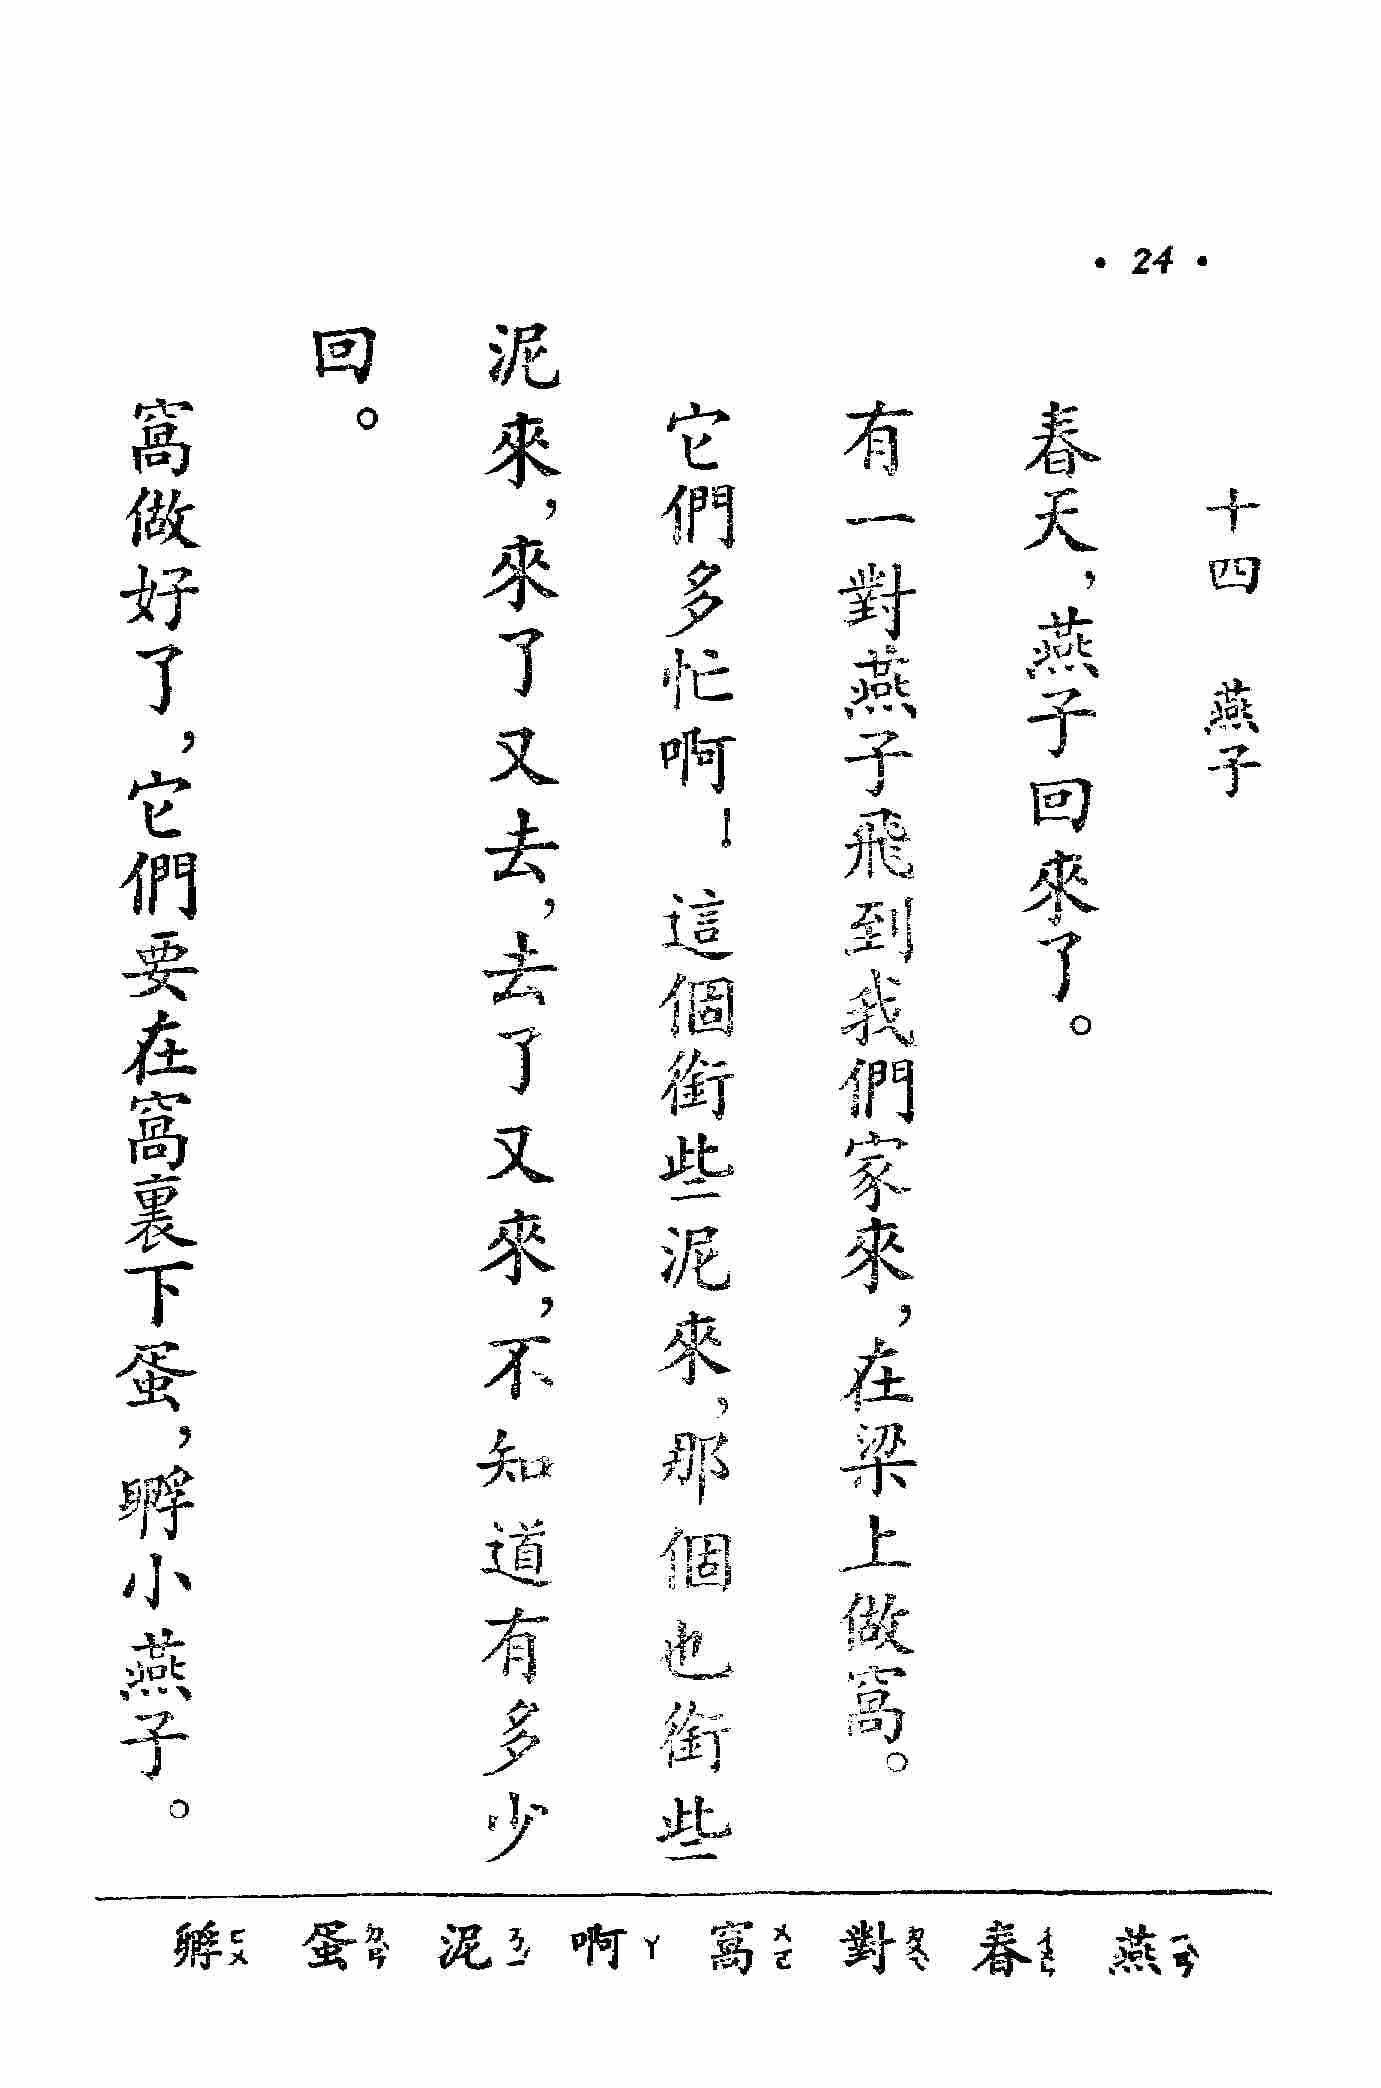 · 24 ·
十四 燕子
春天，燕子回來了。
有一對燕子飛到我們家來，在梁上做窩。
它們多忙啊！這個銜些泥來，那個也銜些
泥來，來了又去，去了又來，不知道有多少
回。
窩做好了，它們要在窩裏下蛋，孵小燕子。
燕ㄧㄢˋ 春ㄔㄨㄣ 對ㄉㄨㄟˋ 窩ㄨㄛ 啊ㄚ 泥ㄋㄧˊ 蛋ㄉㄢˋ 孵ㄈㄨ